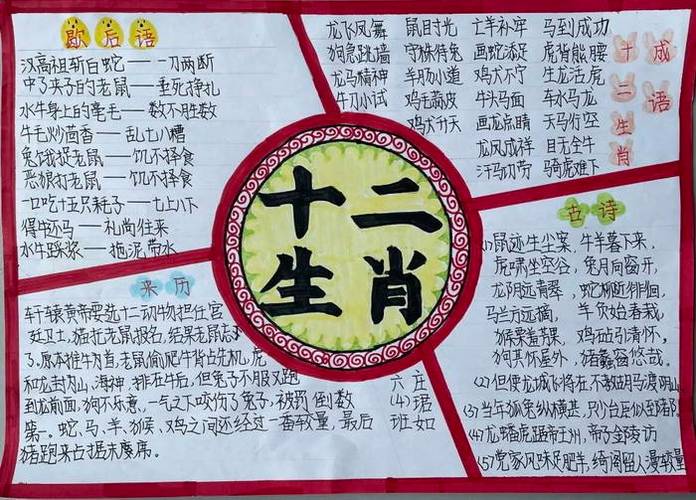 歇后语
汉高祖斩白蛇——一刀两断
中了夹子的老鼠——垂死挣扎
水牛身上的毫毛——数不胜数
牛毛炒茴香——乱七八糟
兔饥捉老鼠——饥不择食
恶狼打老鼠——饥不择食
一口吃十五只耗子——七上八下
得牛还马——礼尚往来
水牛踩浆——拖泥带水
龙飞凤舞 鼠目寸光 亡羊补牢 马到成功
狗急跳墙 守株待兔 画蛇添足 虎背熊腰
龙马精神 羊肠小道 鸡犬不宁 生龙活虎
牛刀小试 鸡毛蒜皮 牛头马面 车水马龙
鸡犬升天 画龙点睛 天马行空
龙凤成祥 目无全牛
汗马功劳 骑虎难下
十二生肖
成语
十二
生肖
古诗
鼠迹生尘案，牛羊暮下来，
虎啸坐空谷，兔月向窗开，
龙阴远青翠，蛇柳近徘徊，
马兰方远摘，羊负始春栽，
猴栗羞芳果，鸡砧引清怀，
狗其怀屋外，猪蠡窗悠哉。
(2)但使龙城飞将在，不教胡马渡阴山
(3)当年狐兔纵横甚，
(4)龙蟠虎踞帝王州，帝子金陵访
(5)党家风味足肥羊，绮阁留人漫较量
来历
轩辕黄帝要选十二动物担任宫
廷卫士，猫托老鼠报名，结果老鼠忘
了。原本推牛为首，老鼠偷爬牛背占先机，虎
和龙封为山，海神，排在牛后，但兔子不服又跑
到龙前面，狗不乐意，一气之下咬伤了兔子，被罚倒数
第一。蛇、马、羊、猴、鸡之间还经过一番较量，最后
猪跑来占据末席。
六(4)班
庄珺如